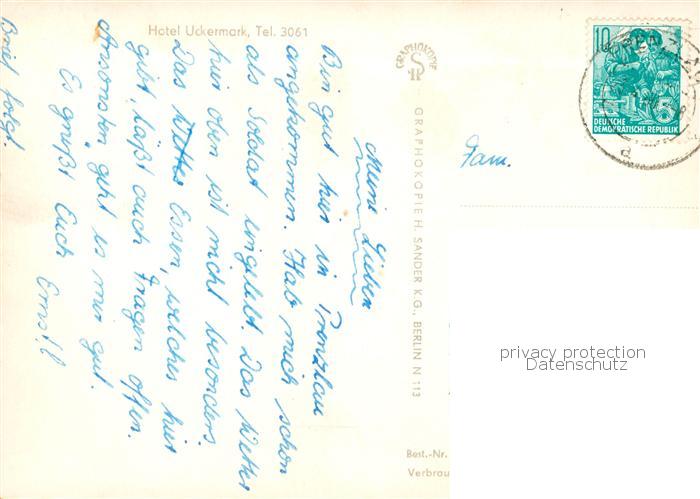 Hotel Uckermark, Tel. 3061
Meine Lieben
Bin gut hier in Prenzlau
angekommen. Hab mich schon
als Soldat eingelebt. Das Wetter
hier oben ist nicht besonders.
Das Wetter Essen, welches hier
gibt, läßt auch Fragen offen.
Ansonsten geht es mir gut.
Es grüßt Euch Ernst!
Brief folgt.
GRAPHOKOPIE
GRAPHOKOPIE H. SANDER K.G., BERLIN N 113
Fam.
10
5
DEUTSCHE
DEMOKRATISCHE REPUBLIK
d
privacy protection
Datenschutz
Best.-Nr.
Verbrau